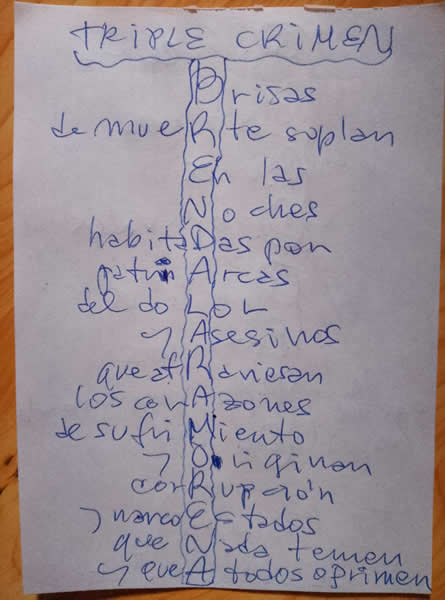 TRIPLE CRIMEN
Brisas
de mueRte soplan
En las
Noches
habitaDas por
patriArcas
del doLor
y Asesinos
que atRaviesan
los corAzones
de sufriMiento
y Originan
corRupción
y narcoEstados
que Nada temen
y que A todos oprimen